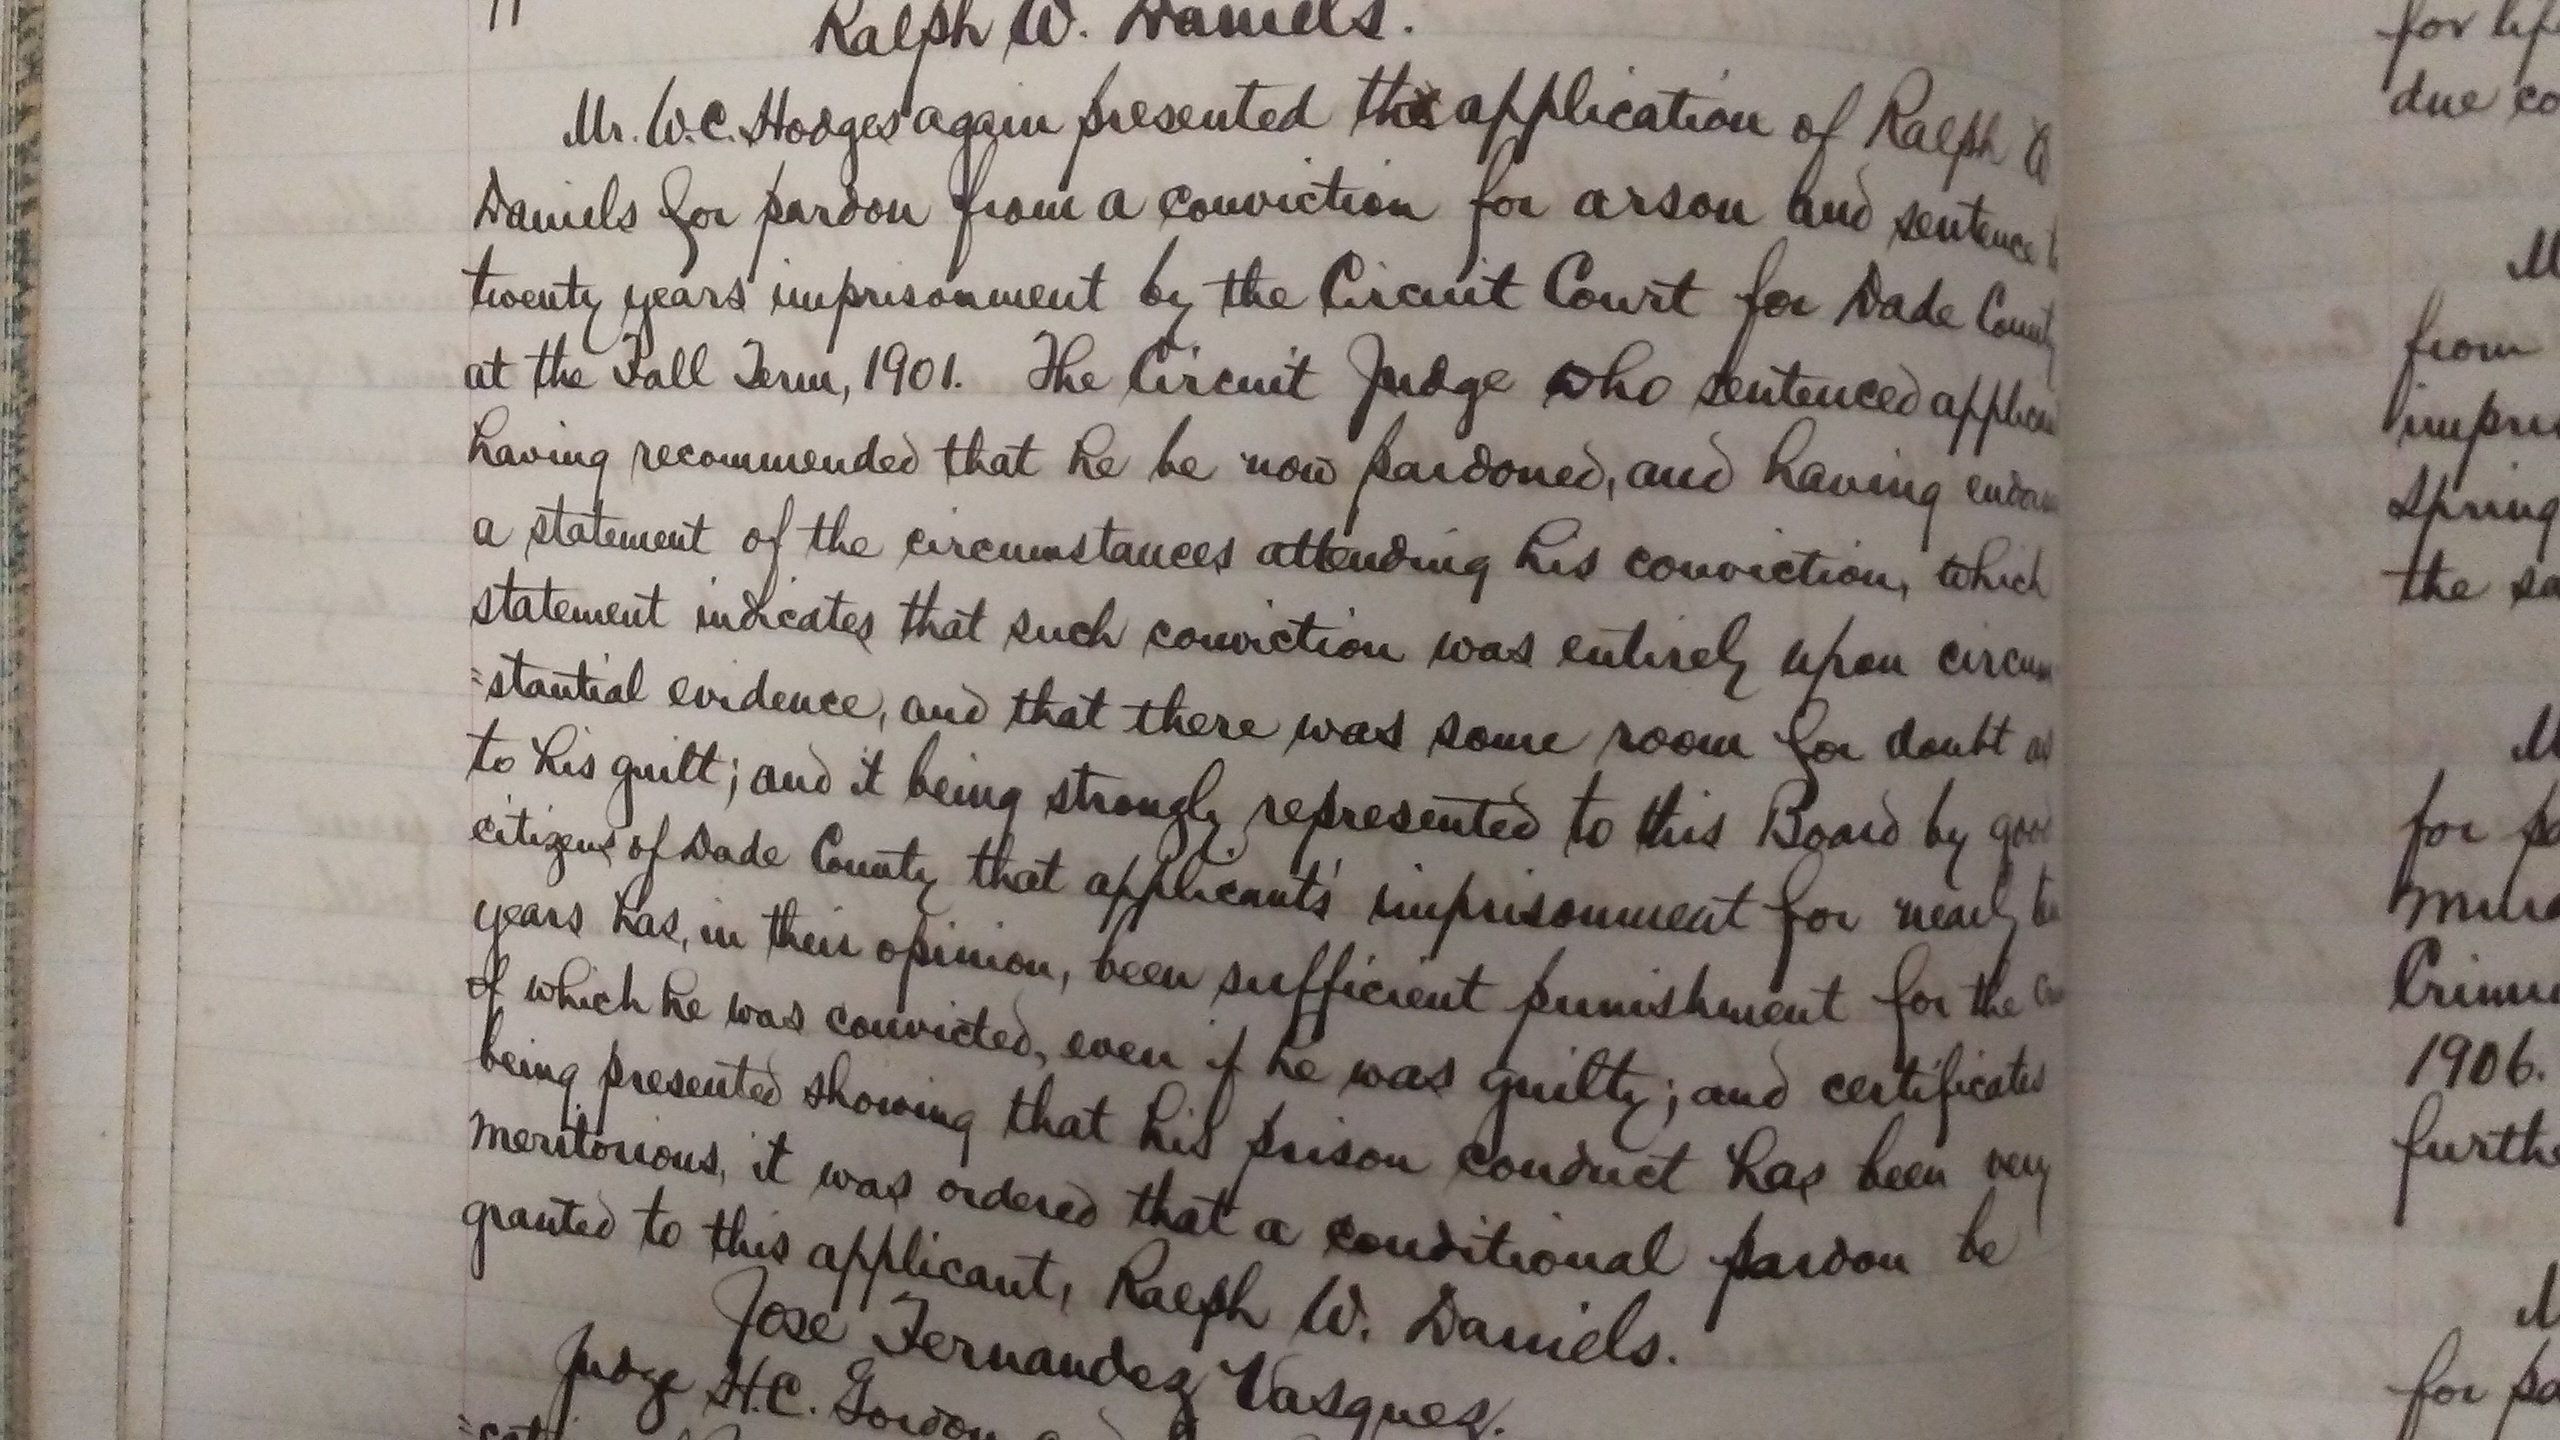 Ralph W. Daniels.
Mr. W.C. Hodges again presented the application of Ralph W
Daniels for pardon from a conviction for arson and sentence t
twenty years imprisonment by the Circuit Court for Dade Count
at the Fall Term, 1901. The Circuit Judge who sentenced applican
having recommended that he be now pardoned, and having endors
a statement of the circumstances attending his conviction, which
statement indicates that such conviction was entirely upon circum
"stantial evidence, and that there was some room for doubt as
to his guilt; and it being strongly represented to this Board by good
citizens of Dade County that applicants' imprisonment for nearly ten
years has, in their opinion, been sufficient punishment for the
of which he was convicted, even if he was guilty; and certificates
being presented showing that his prison conduct has been very
meritorious, it was ordered that a conditional pardon be
granted to this applicant, Ralph W. Daniels.
Jose Fernandez Vasques.
Judge H.C. Gordon
for
due co
M
from
impris
spring
the sa
M
for pa
Crimin
1906.
furthe
M
for pa